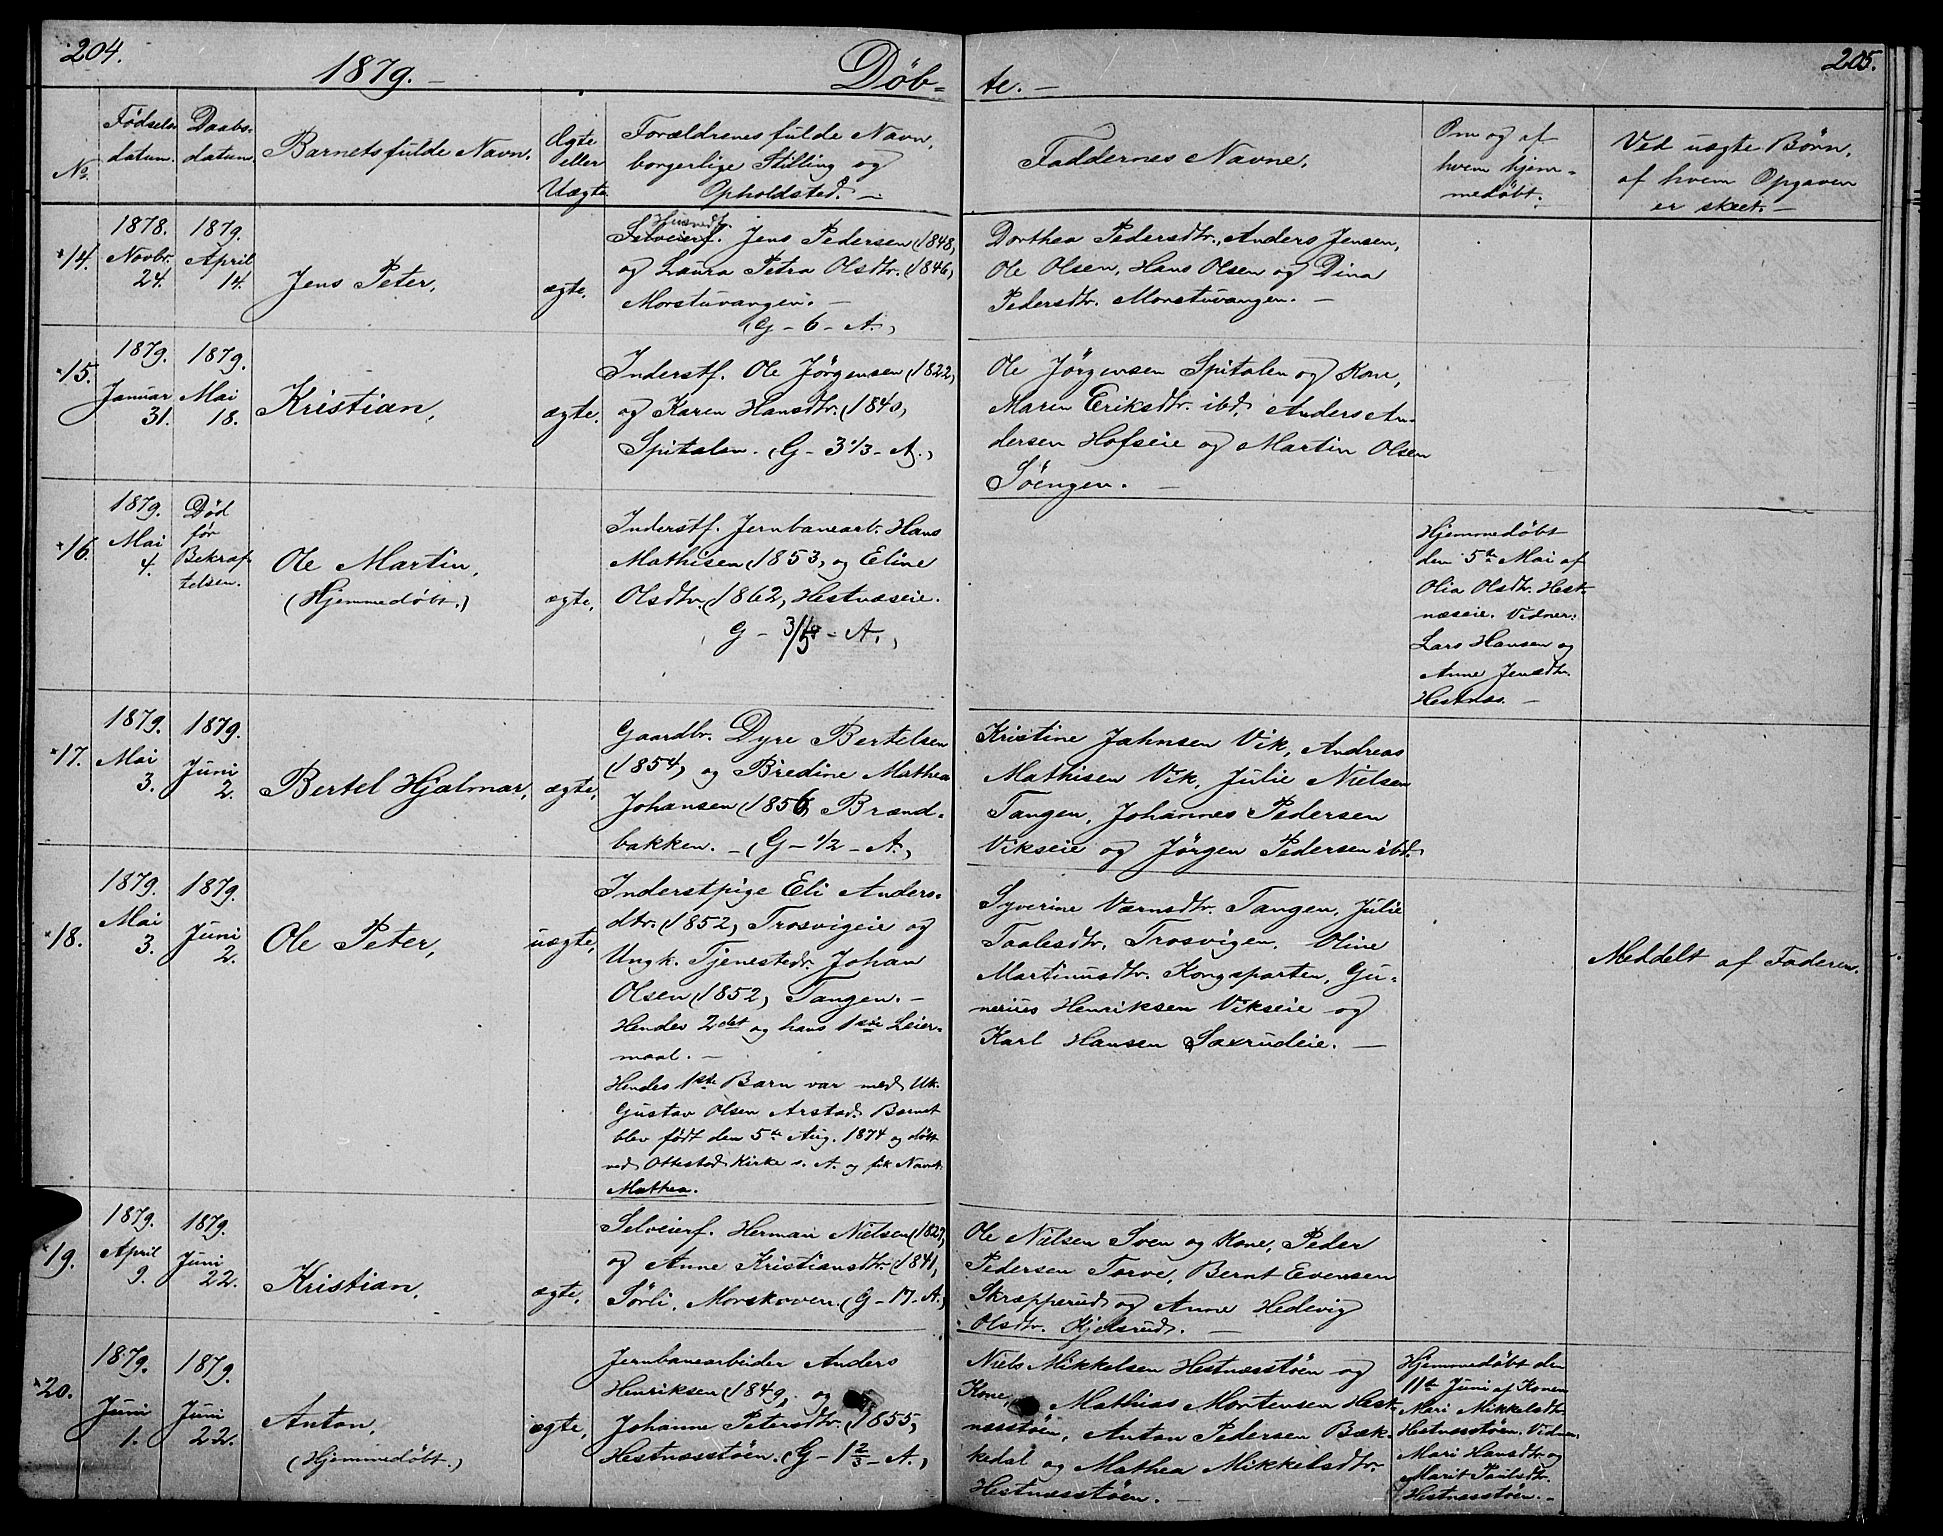 204.
1879. –
Döb-
te. –
205.
No.
Fødsels-
datum.
Daabs-
datum.
Barnets fulde Navn.
Ægte
eller
Uægte
Forældrenes fulde Navn,
borgerlige Stilling og
Opholdsted. –
Faddernes Navne.
Om og af
hvem hjem-
medøbt.
Ved uægte Børn,
af hvem Opgaven
er skeet. –
14.
1878.
Novbr.
24.
1879.
April
14.
Jens Peter,
ægte,
Husmdtr.
Selveierf. Jens Pedersen (1848)
og Laura Petra Olsdtr. (1846)
Morstuvangen. –
(G – 6 – A.)
Dorthea Pedersdtr., Anders Jensen,
Ole Olsen, Hans Olsen og Dina
Pedersdtr. Morstuvangen. –
15.
1879.
Januar
31.
1879.
Mai
18.
Kristian,
ægte.
Inderstf. Ole Jørgensen (1822)
og Karen Hansdtr. (1840)
Spitalen. (G – 3 1/3 – A.)
Ole Jørgensen Spitalen og Kone,
Maren Eriksdtr. ibd. Anders An-
dersen Hofseie og Martin Olsen
Söengen. –
16.
1879.
Mai
4.
Død
før
Bekræf-
telsen.
Ole Martin,
(Hjemmedøbt.)
ægte,
Inderstf. Jernbanearb. Hans
Mathisen (1853) og Eline
Olsdtr. (1862) Hestnæseie.
G – – A.)
Hjemmedøbt
den 5te Mai af
Olia Olsdtr. Hest-
næseie. Vidner:
Lars Hansen og
Anne Jensdtr.
Hestnæs. –
17.
1879.
Mai
3.
1879.
Juni
2.
Bertel Hjalmar,
ægte,
Gaardbr. Dyre Bertelsen
(1854) og Bredine Mathea
Johansen (1856) Brænd-
bakken. – (G – 1/2 – A.)
Kristine Jahnsen Vik, Andreas
Mathisen Vik, Julie Nielsen
Tangen, Johannes Pedersen
Vikseie og Jørgen Pedersen ibd.
18.
1879.
Mai
3.
1879.
Juni
2.
Ole Peter,
uægte,
Inderstpige Eli Anders-
dtr. (1852) Trosvigeie og
Ungk. Tjenestedr. Johan
Olsen (1852) Tangen. –
Hendes 2det og hans 1ste Leier-
maal. –
Hendes 1ste Barn var med Uk.
Gustav Olsen Arstad. Barnet
blev født den 5te Aug. 1874 og døbt
ved Ottestad Kirke s. A. og fik Navnet
Mathea.
Syverine Værnsdtr. Tangen, Julie
Taalesdtr. Trosvigen, Oline
Martinusdtr. Kongsparten, Gu-
nerius Henriksen Vikseie og
Karl Hansen Saxrudeie. –
Meddelt af Faderen.
19.
1879.
April
9.
1879.
Juni
22.
Kristian,
ægte,
Selveierf. Herman Nielsen (1827)
og Anne Kristiansdtr. (1841)
Sörli, Morskoven. (G – 17 – A.)
Ole Nielsen Sven og Kone, Peder
Pedersen Torve, Bernt Evensen
Skræpperud og Anne Hedevig
Olsdtr. Kjelsrud. –
20.
1879.
Juni
1.
1879.
Juni
22.
Anton,
(Hjemmedøbt.)
ægte,
Jernbanearbeider Anders
Henriksen (1849) og
Johanne Petersdtr. (1855)
Hestnæsstöen. (G – 1 2/3 – A.)
Niels Mikkelsen Hestnæsstöen og
Kone, Mathias Mortensen Hest-
næsstöen, Anton Pedersen Bæk-
kedal og Mathea Mikkelsdtr.
Hestnæsstöen. –
Hjemmedøbt den
11te Juni af Konen
Mari Mikkelsdtr.
Hestnæsstöen. Vidner:
Mari Hansdtr. og
Marit Paulsdtr.
Hestnæsstöen. –